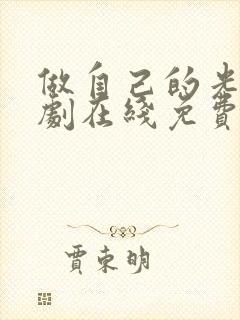 做自己的光
劇在綫免費
賈東明